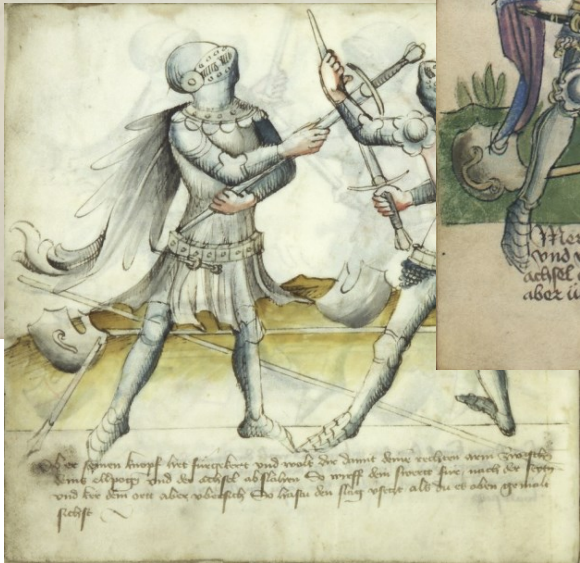 seinen knopf het fürgekert und wolt dir damit deine rechten arm zwischn
deins ellpogn und der achsel abslahen So wirff dein swertt für nach der
und ker dem ortt aber übersich So hastu den slag als du es oben gemalt
sichst
Mer
vnd
achsel
aber ü